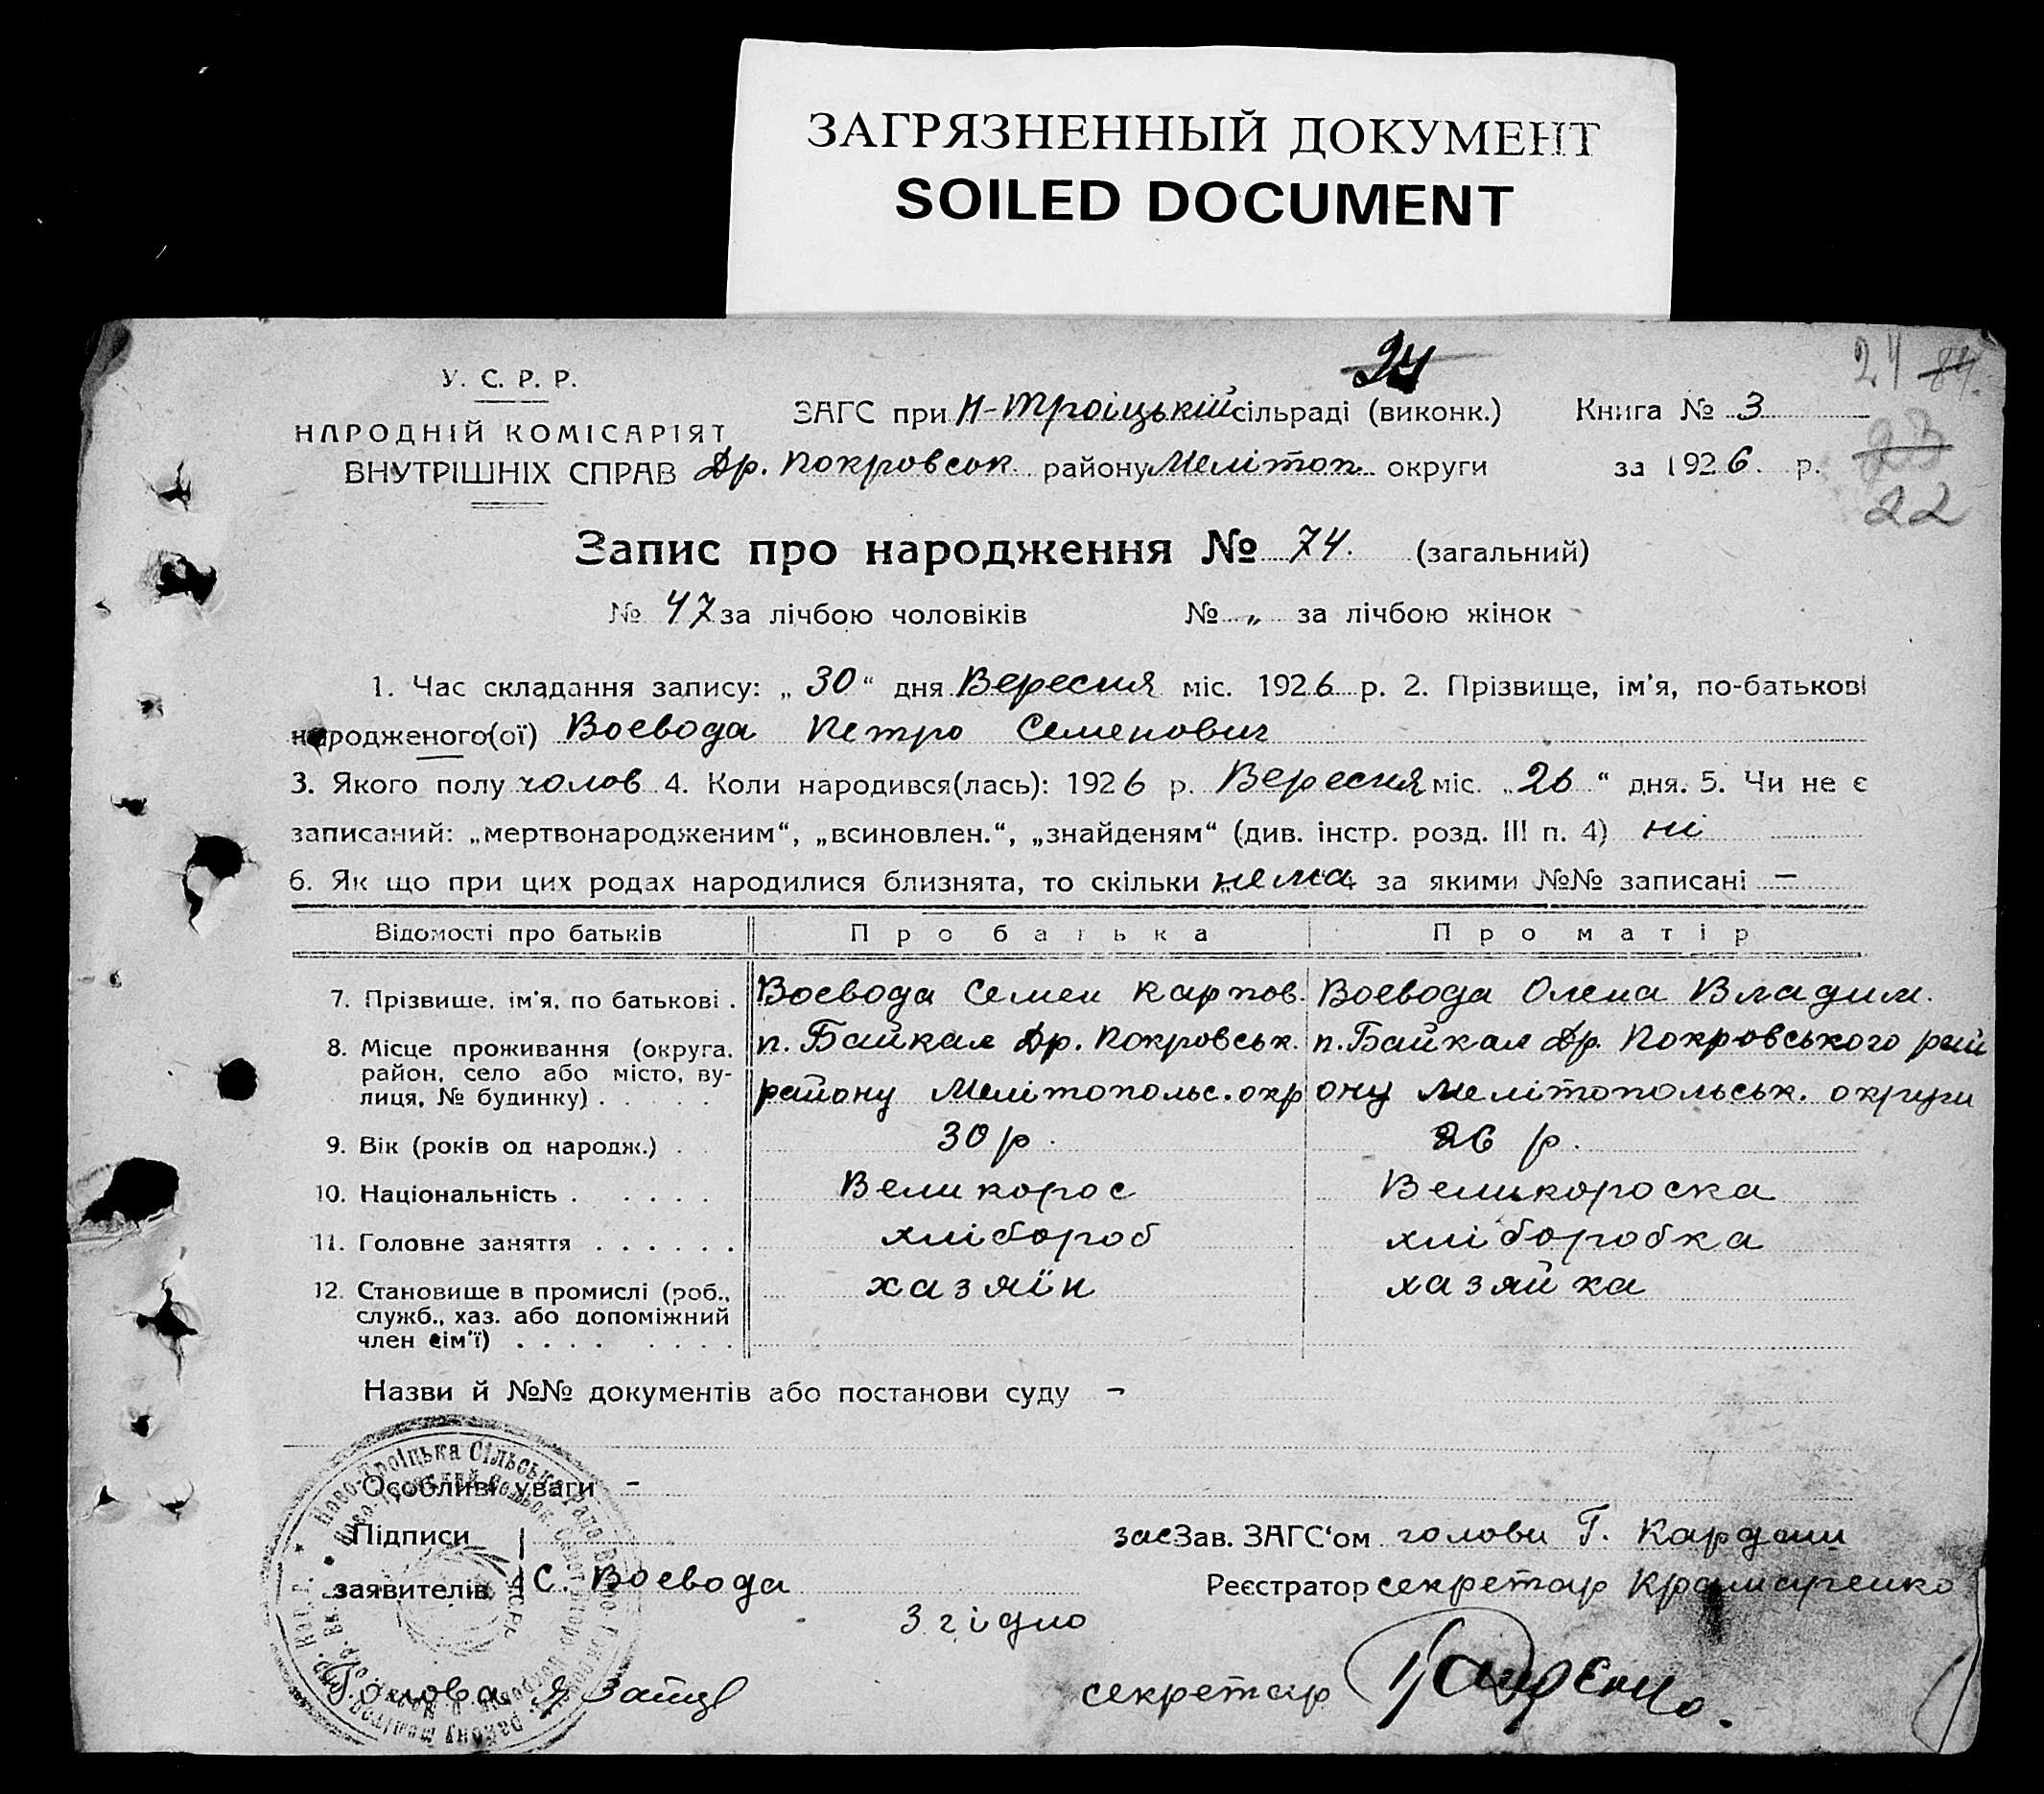 ЗАГРЯЗНЕННЫЙ ДОКУМЕНТ
SOILED DOCUMENT
24
24 84.
У. С. Р. Р.
ЗАГС при Н-Троіцькій сільраді (виконк.) Книга № 3
НАРОДНІЙ КОМІСАРІЯТ
23
ВНУТРІШНІХ СПРАВ Др. Покровськ району Мелітоп. округи за 1926. р.
22
Запис про народження № 74. (загальний)
№ 47 за лічбою чоловіків № „ за лічбою жінок
1. Час складання запису: „30“ дня Вересня міс. 1926 р. 2. Прізвище, ім'я, по-батькові
народженого(ої) Воєвода Петро Семенович
3. Якого полу чолов 4. Коли народився(лась): 1926 р. Вересня міс. „26“ дня. 5. Чи не є
записаний: „мертвонародженим“, „всиновлен.“, „знайденям“ (див. інстр. розд. III п. 4) ні
6. Як що при цих родах народилися близнята, то скільки нема за якими №№ записані –
Відомості про батьків Про батька Про матір
7. Прізвище, ім'я, по батькові . Воєвода Семен Карпов. Воєвода Олена Владим.
8. Місце проживання (округа, п. Байкал Др. Покровськ. п. Байкал Др. Покровського рай
район, село або місто, ву-
лиця, № будинку) . . . . . району Мелітопольс. окр ону Мелітопольськ. округи
9. Вік (років од народж.) . . 30 р. 26 р.
10. Національність . . . . . Великорос Великороска
11. Головне заняття . . . . . . хлібороб хліборобка
12. Становище в промислі (роб., хазяїн хазяйка
служб., хаз. або допоміжний
член сім'ї) . . . . . . . .
Назви й №№ документів або постанови суду –
Особливі уваги –
Підписи засЗав. ЗАГС'ом голови Г. Кардаш
заявителів С. Воєвода Реєстратор секретар Крамаренко
Згідно
Голова секретар
Ново-Троїцька Сільська Рада